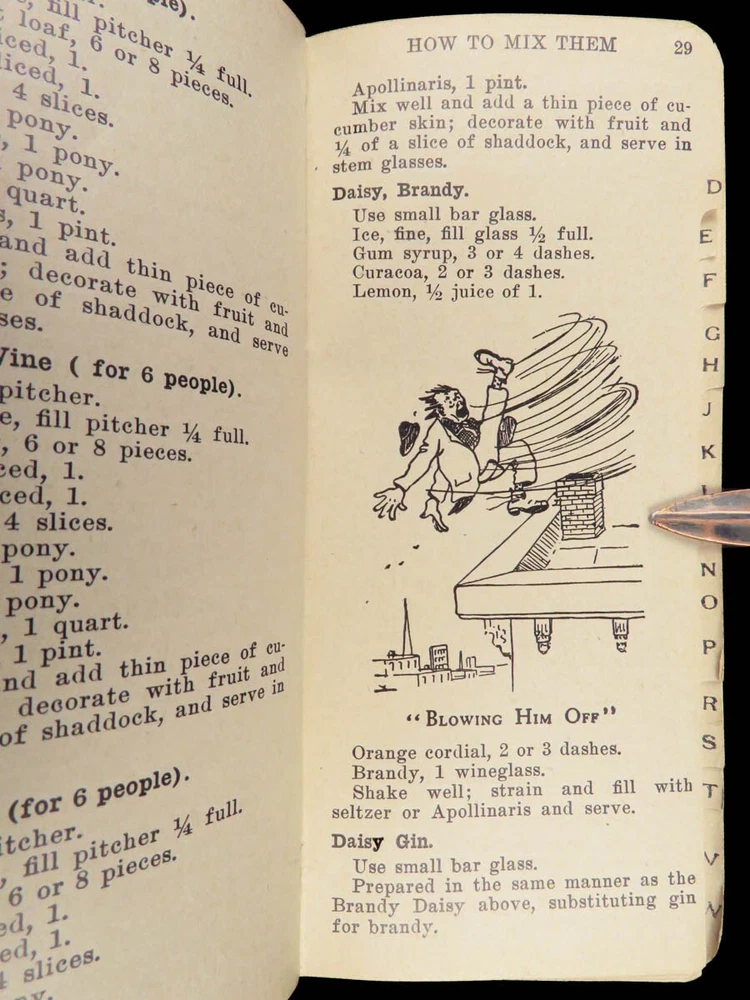 fill pitcher ¼ full.
loaf, 6 or 8 pieces.
iced, 1.
liced, 1.
4 slices.
pony.
, 1 pony.
pony.
quart.
s, 1 pint.
and add thin piece of cu-
; decorate with fruit and
e of shaddock, and serve
ses.
Vine ( for 6 people).
pitcher.
e, fill pitcher ¼ full.
, 6 or 8 pieces.
ced, 1.
ced, 1.
4 slices.
pony.
1 pony.
pony.
, 1 quart.
1 pint.
nd add thin piece of cu-
decorate with fruit and
of shaddock, and serve in
(for 6 people).
itcher.
, fill pitcher ¼ full.
6 or 8 pieces.
ed, 1.
ed, 1.
4 slices.
ny.
HOW TO MIX THEM 29
Apollinaris, 1 pint.
Mix well and add a thin piece of cu-
cumber skin; decorate with fruit and
¼ of a slice of shaddock, and serve in
stem glasses.
Daisy, Brandy.
Use small bar glass.
Ice, fine, fill glass ½ full.
Gum syrup, 3 or 4 dashes.
Curacoa, 2 or 3 dashes.
Lemon, ½ juice of 1.
"Blowing Him Off"
Orange cordial, 2 or 3 dashes.
Brandy, 1 wineglass.
Shake well; strain and fill with
seltzer or Apollinaris and serve.
Daisy Gin.
Use small bar glass.
Prepared in the same manner as the
Brandy Daisy above, substituting gin
for brandy.
D
E
F
G
H
J
K
N
O
P
R
S
T
V